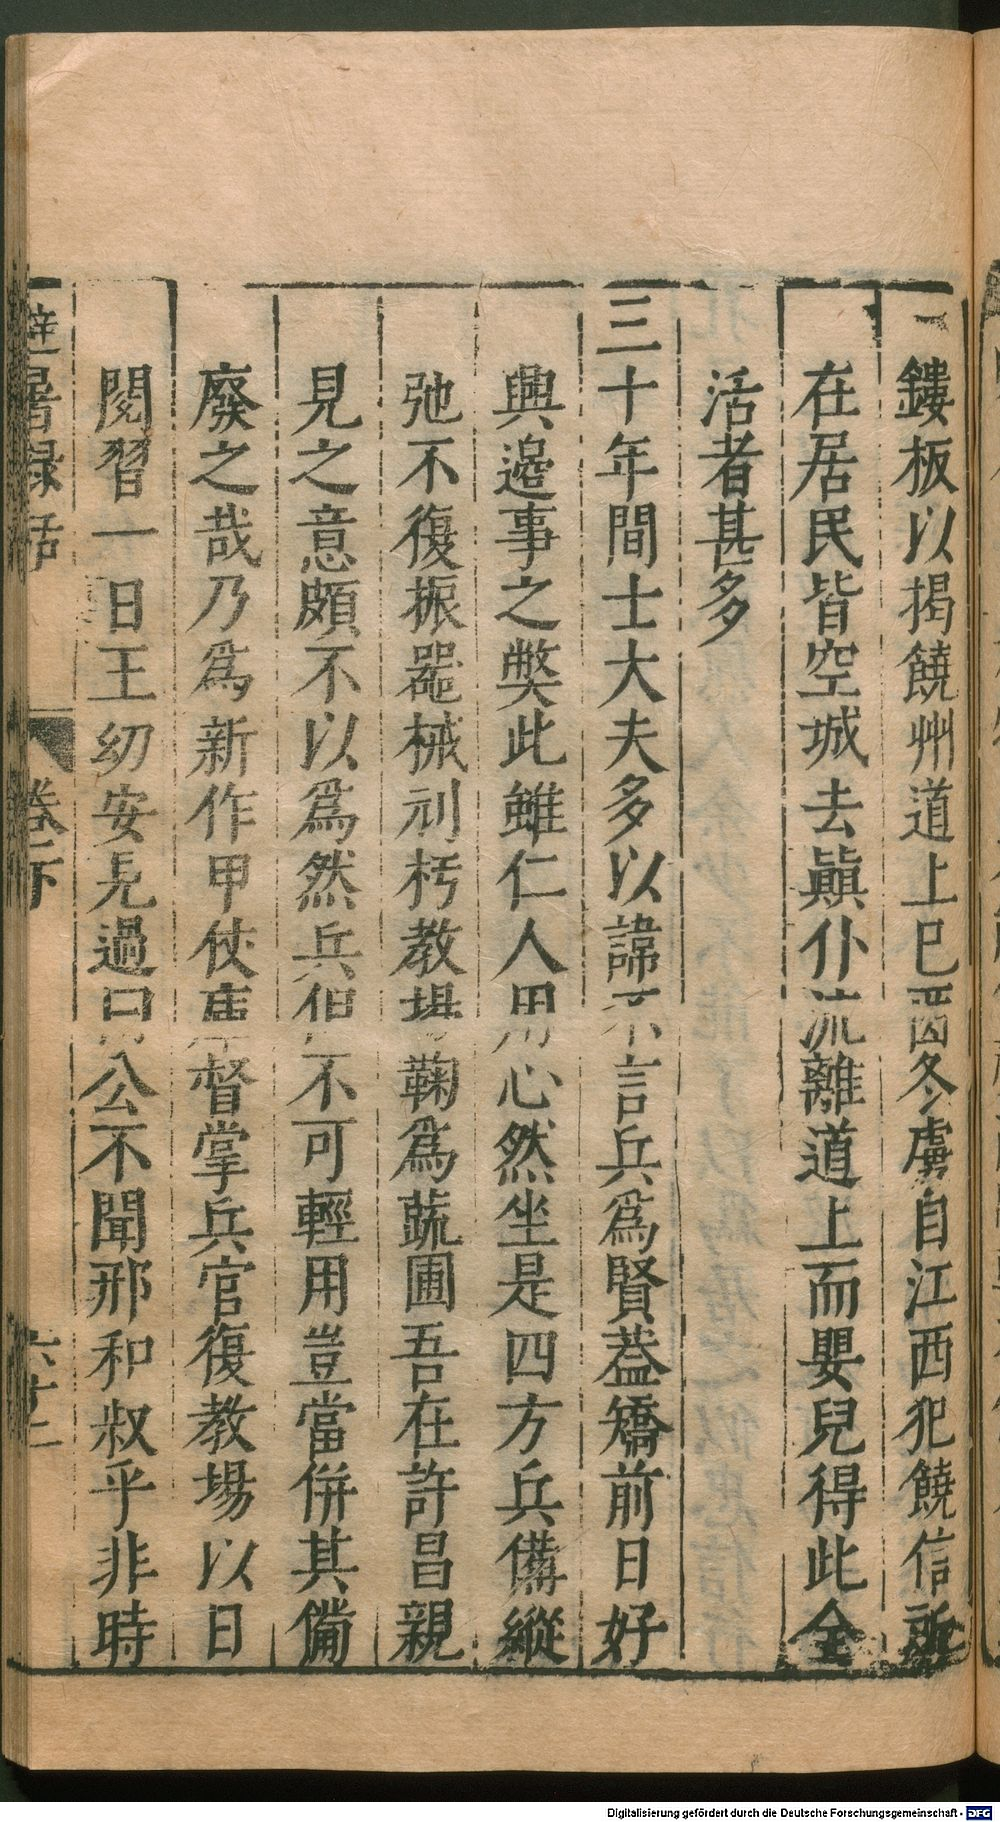 鏤板以揭饒州道上巳酉冬虜自江西犯饒信所
在居民皆空城去顚仆流離道上而嬰兒得此全
活者甚多
三十年間士大夫多以諱不言兵爲賢葢矯前日好
興邊事之獘此雖仁人用心然坐是四方兵備縱
弛不復振噐械刓朽教場鞠爲蔬圃吾在許昌親
見之意頗不以爲然兵但不可輕用豈當併其備
廢之哉乃爲新作甲仗庫督掌兵官復教場以日
閱習一日王幼安見過曰公不聞邢和叔乎非時
避暑録話
卷下
六十二
Digitalisierung gefördert durch die Deutsche Forschungsgemeinschaft - DFG